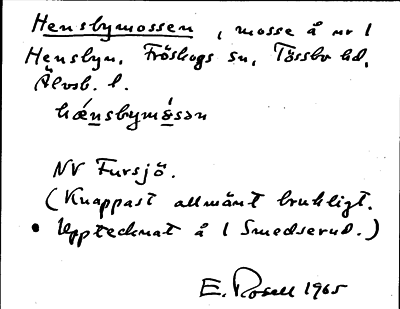 Hensbymossen, mosse å nr 1
Hensbyn, Fröskogs sn, Tössbo hd,
Älvsb. l.
hǽnsbymɷ̀sən
NV Fursjö.
(Knappast allmänt brukligt.
• Upptecknat å 1 Smedserud.)
E. Rosell 1965